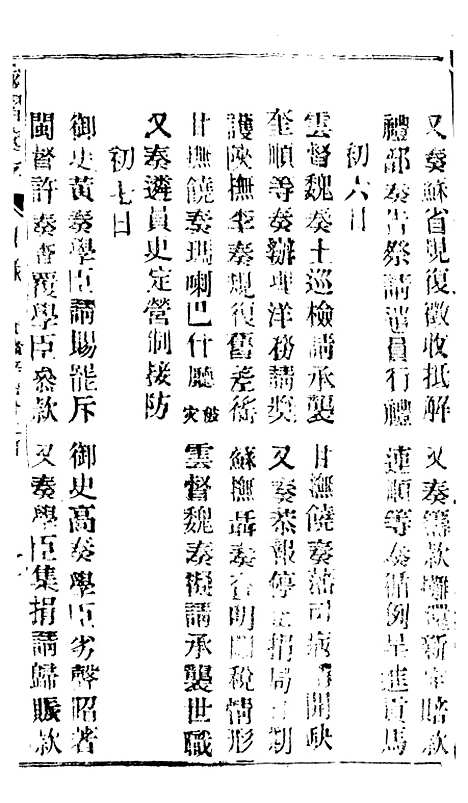 又奏蘇省規復徵收抵解　又奏籌款攤還新章賠款
禮部奏告祭請遣員行禮　連順等奏循例呈進貢馬
初六日
雲督魏奏土巡檢請承襲　甘撫饒奏藩司病請開缺
奎順等奏辦理洋務請獎　又奏恭報停止捐局日期
護陝撫李奏規復舊差徭　蘇撫聶奏查明關稅情形
甘撫饒奏瑪喇巴什廳被災　雲督魏奏擬請承襲世職
又奏遴員史定營制接防
初七日
御史黃奏學臣請賜罷斥　御史高奏學臣劣聲昭著
閩督許奏查覆學臣參款　又奏學臣集捐請歸賑款
目錄